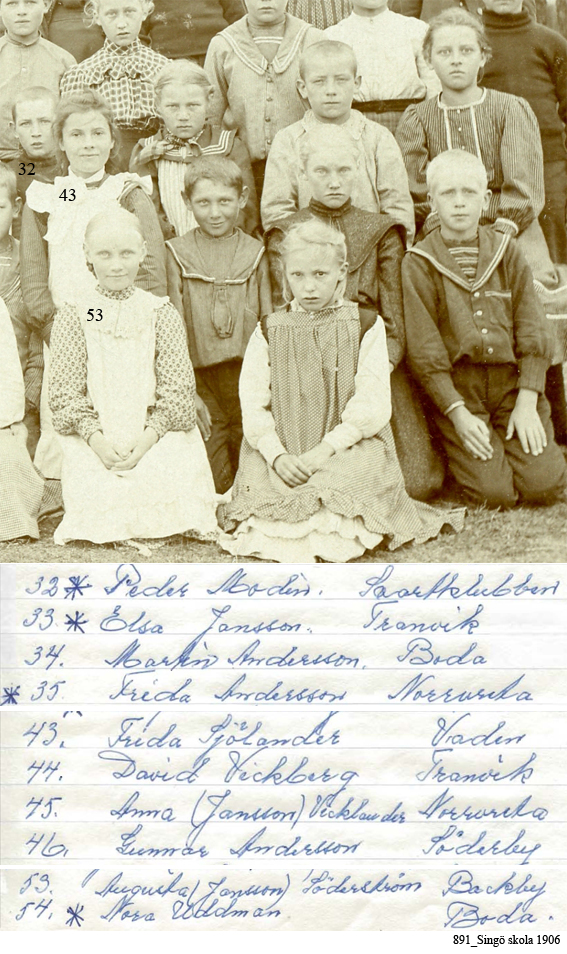 32
43
53
32 * Peder Modin. Svartklubben
33. * Elsa Jansson. Tranvik
34. Martin Andersson. Boda
* 35. Frida Andersson Norrvreta
43. Frida Sjölander Vaden
44. David Vickberg Tranvik
45. Anna (Jansson) Vicklander Norrvreta
46. Gunnar Andersson Söderby
53. Augusta (Jansson) Söderström Backby
54. * Nora Uddman Boda.
891_Singö skola 1906